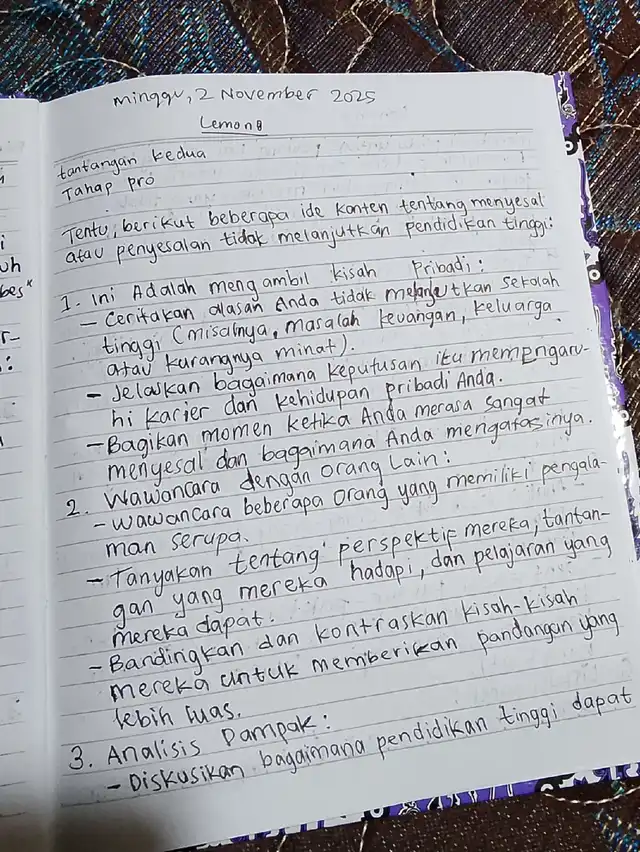 Minggu, 2 November 2025
Lemon8
tantangan kedua
Tahap pro
Tentu, berikut beberapa ide konten tentang menyesal
atau penyesalan tidak melanjutkan pendidikan tinggi:
1. Ini Adalah mengambil kisah Pribadi:
- Ceritakan alasan Anda tidak melanjutkan sekolah
tinggi (misalnya, masalah keuangan, keluarga
atau kurangnya minat).
- Jelaskan bagaimana keputusan itu mempengaru-
hi karier dan kehidupan pribadi Anda.
- Bagikan momen ketika Anda merasa sangat
menyesal dan bagaimana Anda mengatasinya.
2. Wawancara dengan Orang Lain:
- Wawancara beberapa orang yang memiliki pengala-
man serupa.
- Tanyakan tentang perspektif mereka, tantan-
gan yang mereka hadapi, dan pelajaran yang
mereka dapat.
- Bandingkan dan kontraskan kisah-kisah
mereka untuk memberikan pandangan yang
lebih luas.
3. Analisis Dampak:
- Diskusikan bagaimana pendidikan tinggi dapat